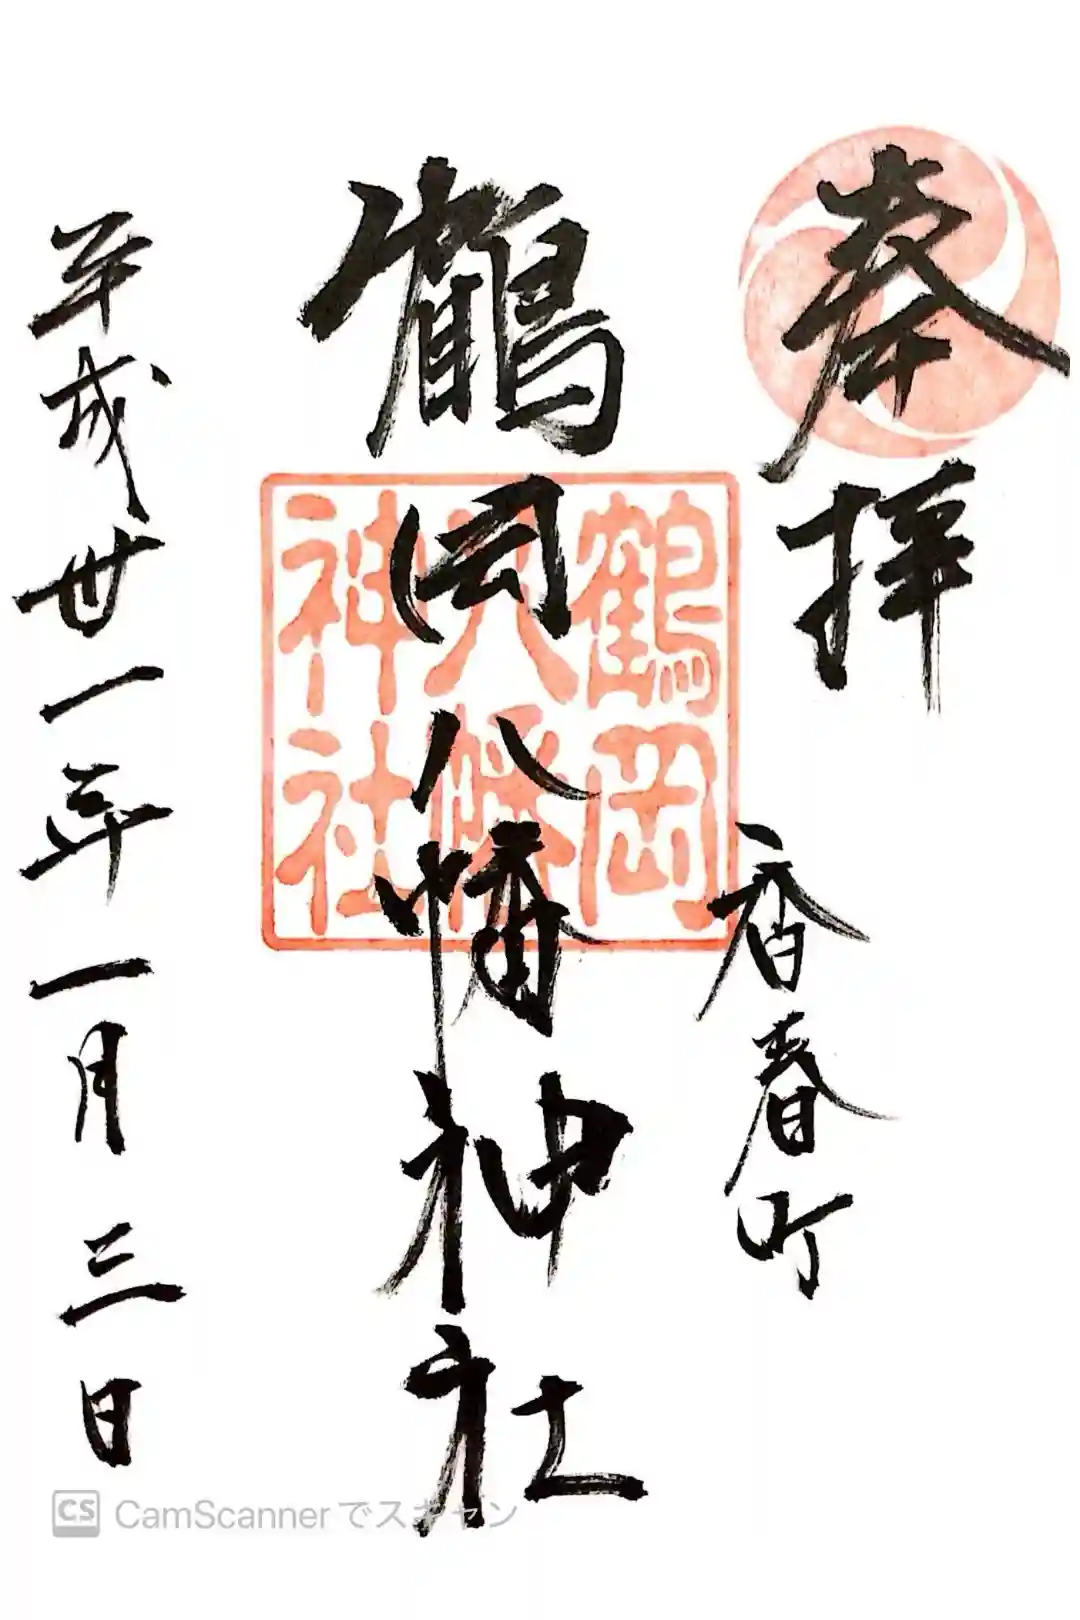 奉拝
香春町
鶴岡八幡神社
鶴岡
八幡
神社
平成廿一年一月三日
CS CamScannerでスキャン